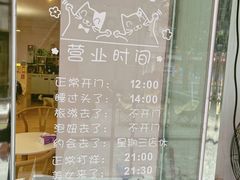 营业时间
正常开门: 12:00
睡过头了: 14:00
旅游去了: 不开门
泡妞去了: 不开门
约会去了: 星期三店休
正常打烊: 21:00
美女来了: 21:30